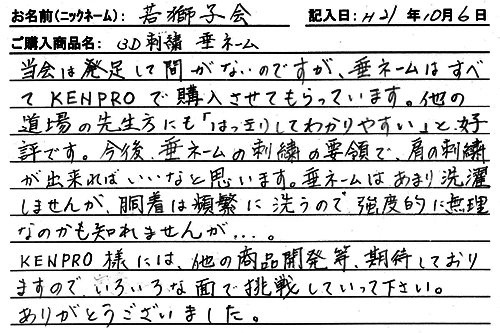 お名前(ニックネーム): 若獅子会 記入日: H21 年10月6日
ご購入商品名: 3D刺繍 垂ネーム
当会は発足して間がないのですが、垂ネームはすべ
てKENPROで購入させてもらっています。他の
道場の先生方にも「はっきりしてわかりやすい」と、好
評です。今後、垂ネームの刺繍の要領で、肩の刺繍
が出来ればいいなと思います。垂ネームはあまり洗濯
しませんが、胴着は頻繁に洗うので強度的に無理
なのかも知れませんが...。
KENPRO様には、他の商品開発等、期待しており
ますので、いろいろな面で挑戦していって下さい。
ありがとうございました。